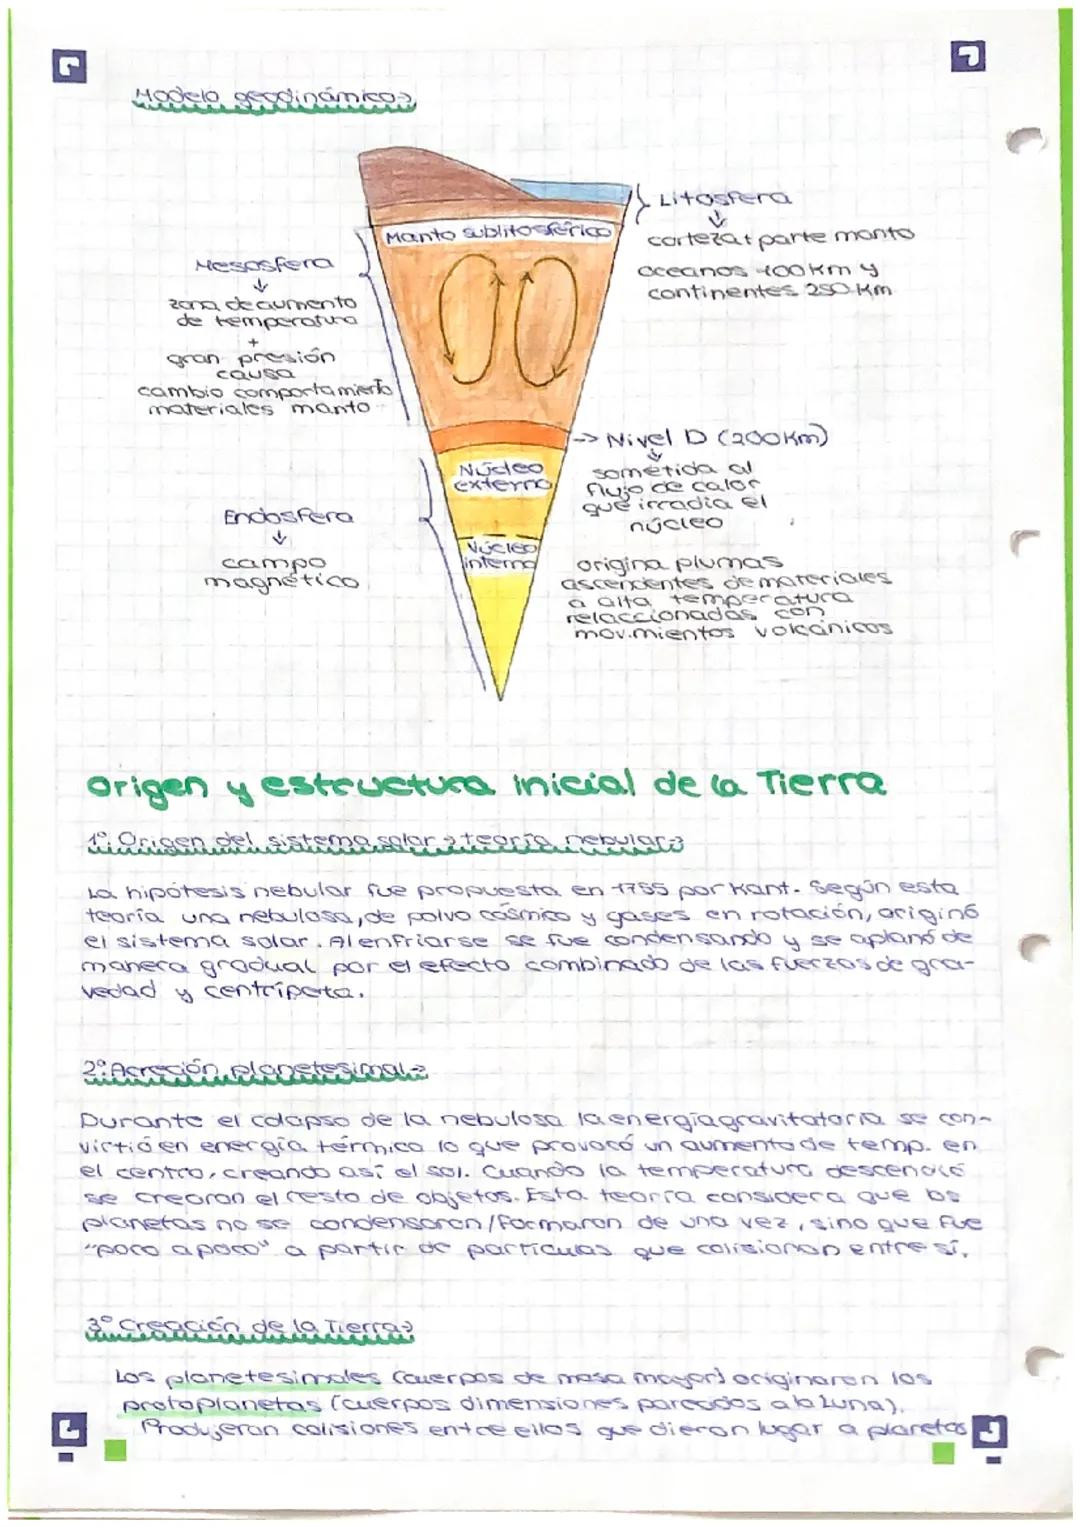 Modelo geodinámico→
Litosfera
↓
corteza + parte manto
oceanos 100 Km y
continentes 250 Km
Manto sublitosférico
Mesosfera
↓
zona de aumento
de temperatura
+
gran presión
causa
cambio comportamiento
materiales manto
→ Nivel D (200Km)
↓
sometida al
flujo de calor
que irradia el
núcleo
origina plumas
ascendentes de materiales
a alta temperatura
relaccionadas con
movimientos volcánicos
Núcleo
externo
Núcleo
interno
Endosfera
↓
campo
magnético
Origen y estructura inicial de la Tierra
1º Origen del sistema solar → teoría nebular→
La hipótesis nebular fue propuesta en 1755 por Kant. Según esta
teoría una nebulosa, de polvo cósmico y gases en rotación, originó
el sistema solar. Al enfriarse se fue condensando y se aplanó de
manera gradual por el efecto combinado de las fuerzas de gra-
vedad y centrípeta.
2º Acreción planetesimal→
Durante el colapso de la nebulosa la energía gravitatoria se con-
virtió en energía térmica lo que provocó un aumento de temp. en
el centro, creando así el sol. Cuando la temperatura descendió
se crearon el resto de objetos. Esta teoría considera que los
planetas no se condensaron/formaron de una vez, sino que fue
"poco a poco" a partir de partículas que colisionan entre sí.
3º Creación de la Tierra→
Los planetesimales (cuerpos de masa mayor) originaron los
protoplanetas (cuerpos dimensiones parecidos a la Luna).
Produjeron colisiones entre ellos que dieron lugar a planetas